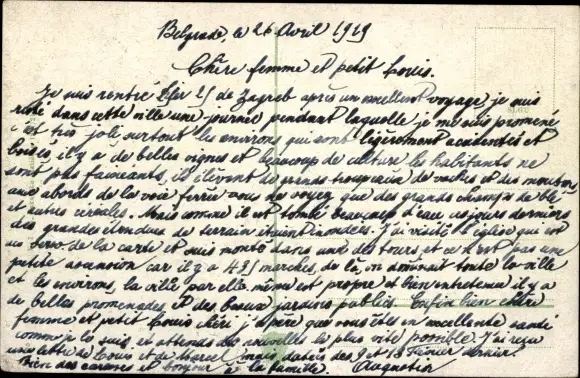 Belgrade le 26 Avril 1919
Chère femme et petit Louis.
Je suis rentré hier 25 de Zagreb après un excellent voyage, je suis
resté dans cette ville une journée pendant laquelle je me suis promené
c'est très joli surtout les environs qui sont légèrement accidentés et
boisés, il y a de belles vignes et beaucoup de culture les habitants ne
sont pas faineants, ils élèvent de grands troupeaux de vaches et des moutons
aux abords de la voie ferrée vous ne voyez que des grands champs de blé
et autres céréales. Mais comme il est tombé beaucoup d'eau ces jours derniers
des grandes étendues de terrain étaient inondées. J'ai visité l'église qui est
au verso de la carte et suis monté dans une des tours, et ce n'est pas une
petite ascension car il y a 425 marches, de là, on dominait toute la ville
et les environs, la ville par elle même est propre et bien entretenue il y a
de belles promenades et des beaux jardins publics. Enfin bien chère
femme et petit Louis chéri j'espère que vous êtes en excellente santé
comme je le suis, et attends des nouvelles le plus vite possible. J'ai reçu
une lettre de Louis et de Marcel mais datées des 9 et 18 Février dernier.
Bien des caresses et bonjour à la famille. Augustin